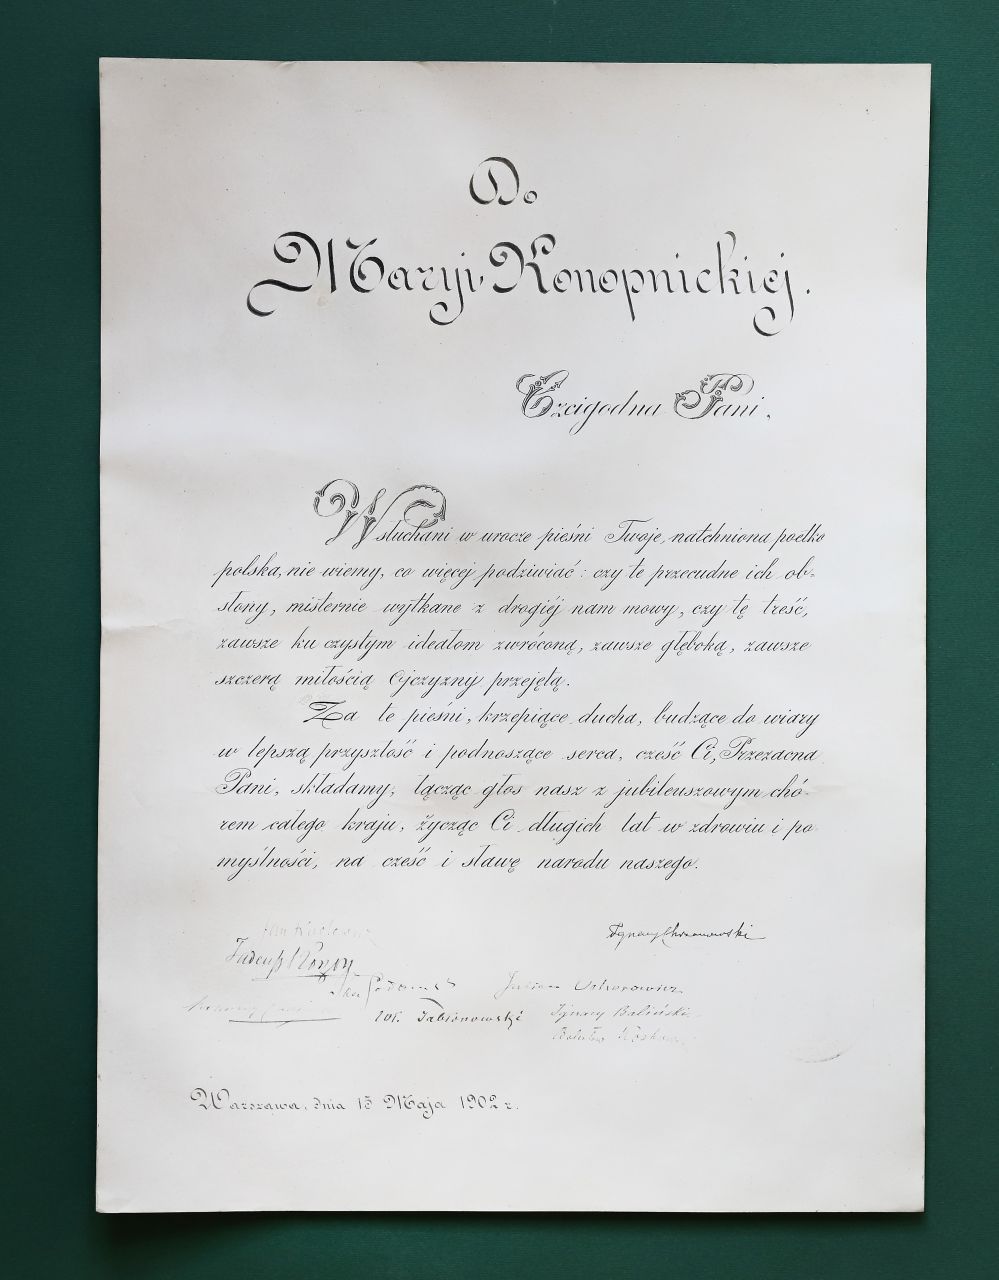 Do
Maryi Konopnickiej.
Czcigodna Pani,
Wsłuchani w urocze pieśni Twoje, natchniona poetko
polska, nie wiemy, co więcej podziwiać: czy te przecudne ich ob-
słony, misternie wytkane z drogiéj nam mowy, czy tę treść,
zawsze ku czystym ideałom zwróconą, zawsze głęboką, zawsze
szczerą miłością Ojczyzny przejętą.
Za te pieśni, krzepiące ducha, budzące do wiary
w lepszą przyszłość i podnoszące serca, cześć Ci, Przezacna
Pani, składamy, łącząc głos nasz z jubileuszowym chó-
rem całego kraju, życząc Ci długich lat w zdrowiu i po-
myślności, na cześć i sławę narodu naszego.
Ignacy Chrzanowski
Tadeusz Korzon
Julian Ochorowicz
Jabłonowski
Ignacy Baliński
Warszawa, dnia 15 Maja 1902 r.